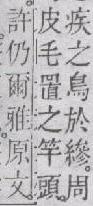 疾之鳥於縿。周
皮毛置之竿頭。
許仍爾雅原文